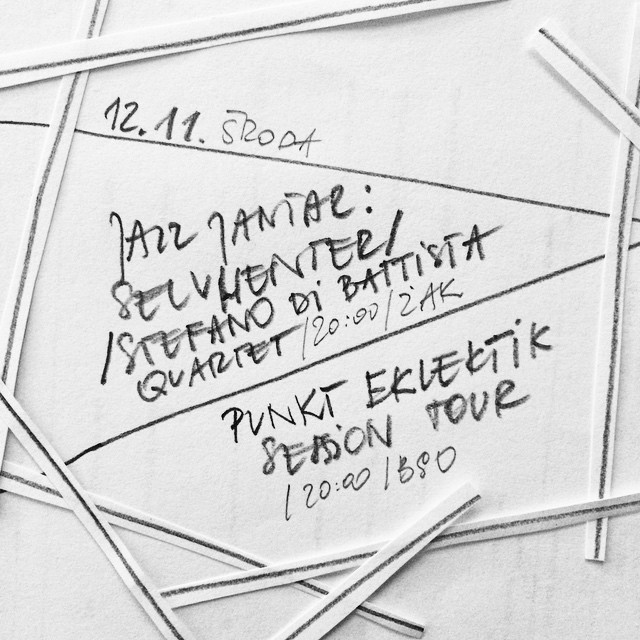 12.11. ŚRODA
JAZZ JANTAR:
SELVHENTER/
/STEFANO Di BATTISTA
QUARTET /20:00/ŻAK
PUNKT EKLEKTiK
SEASiON TOUR
/20:00/BSO